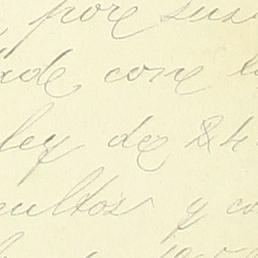 por sus
de con l
ley de 24
cultos y co